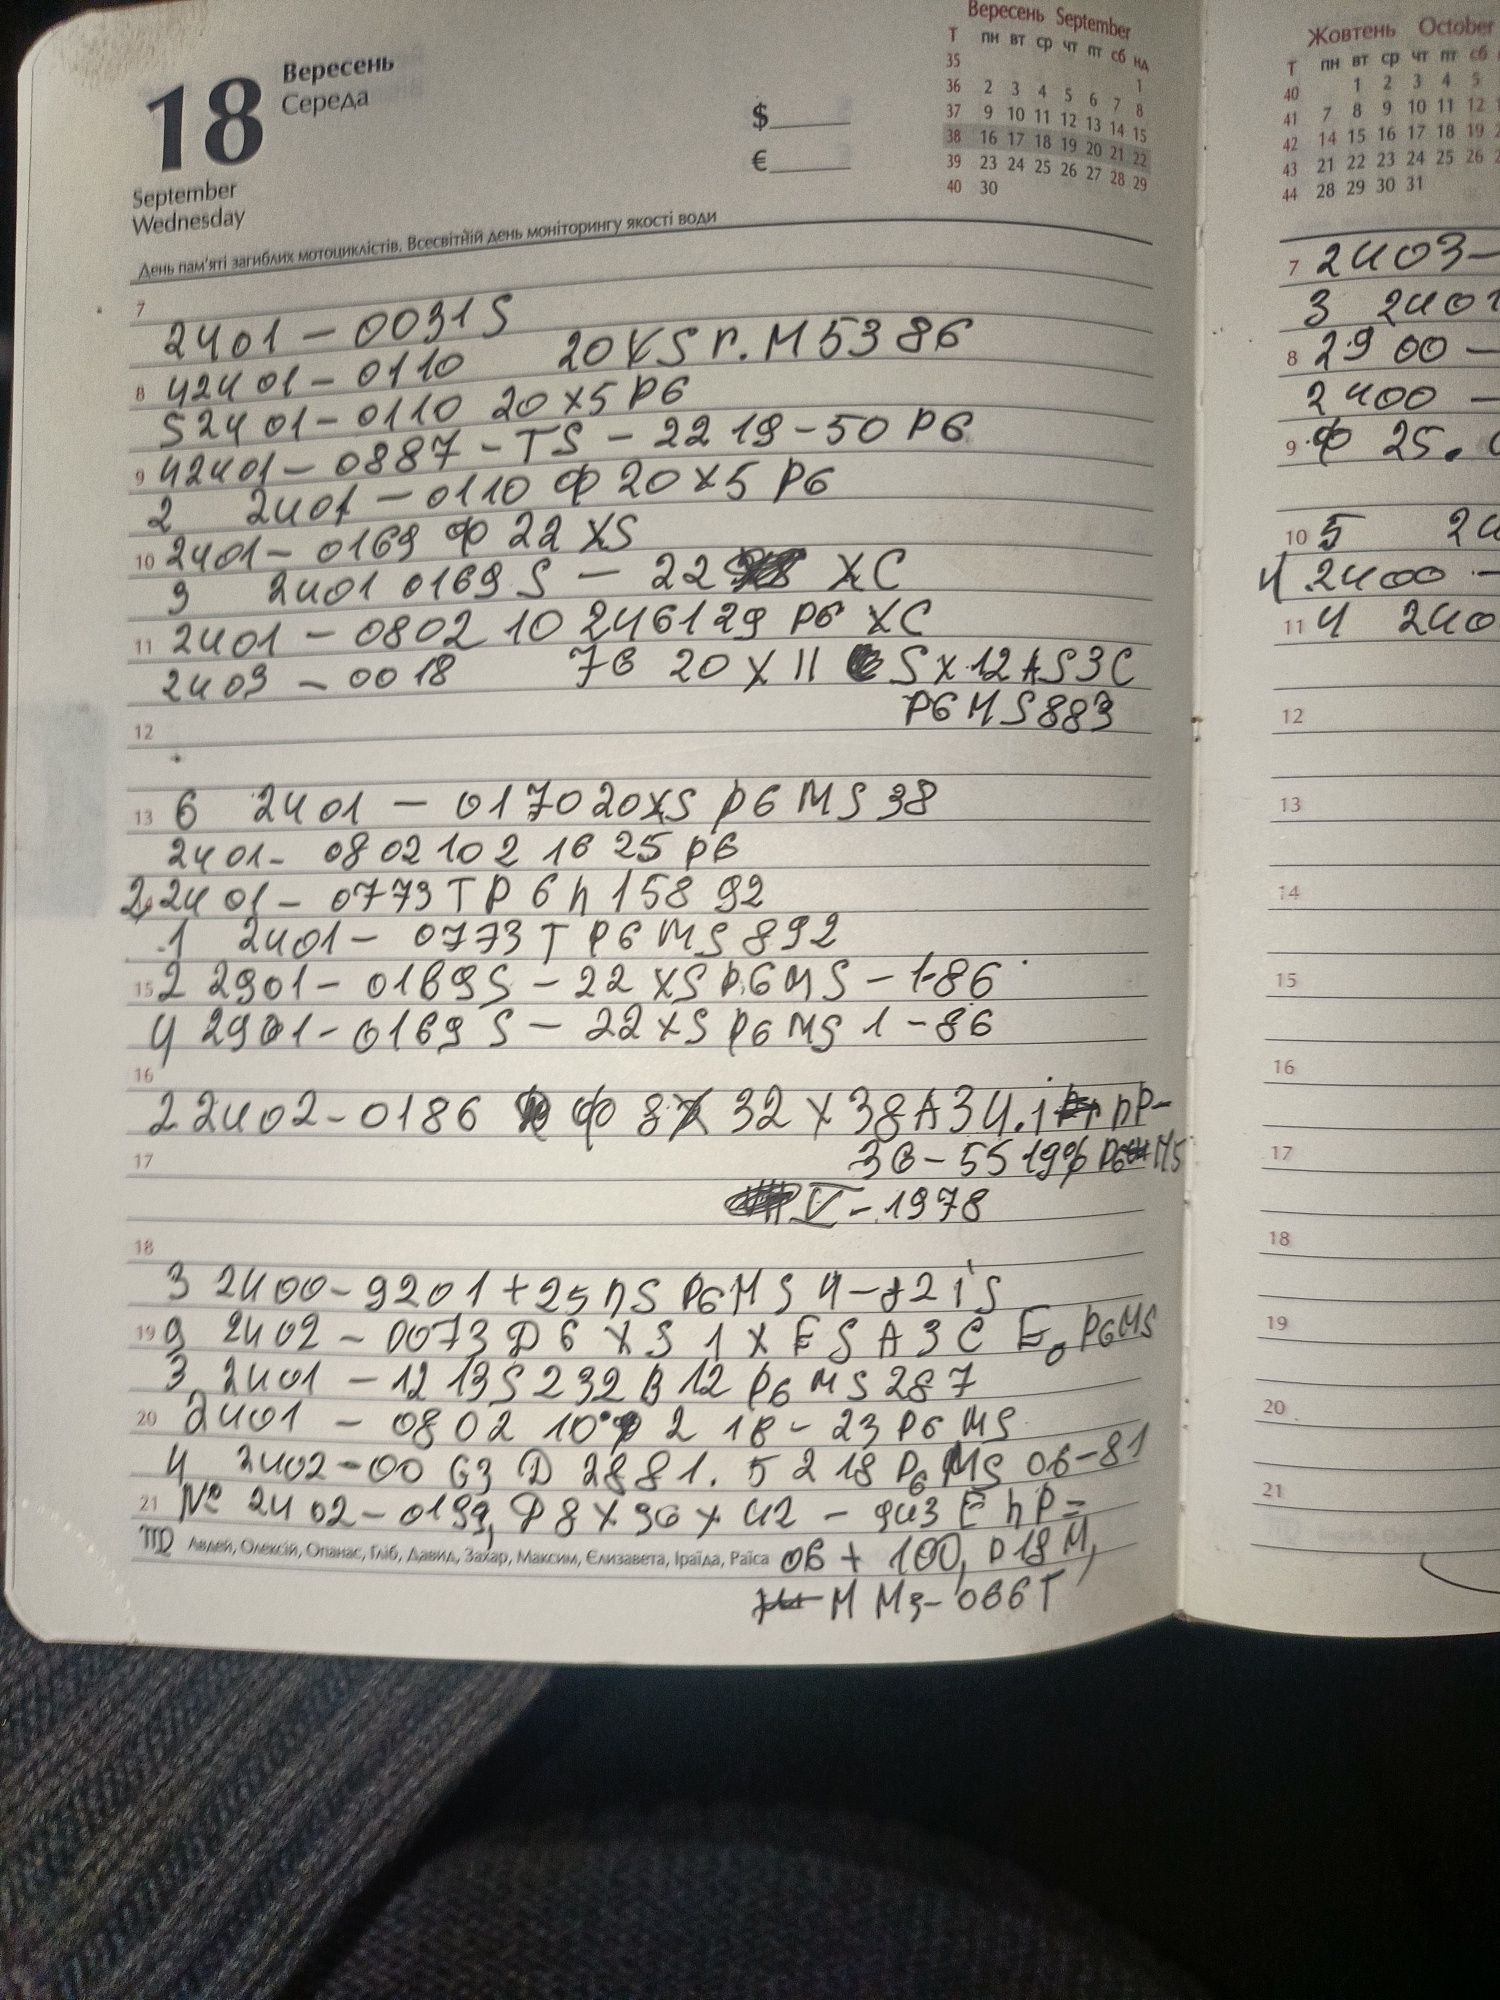 18
Вересень
Середа
September
Wednesday
$
€
Вересень September
Т пн вт ср чт пт сб нд
35 1
36 2 3 4 5 6 7 8
37 9 10 11 12 13 14 15
38 16 17 18 19 20 21 22
39 23 24 25 26 27 28 29
40 30
День пам'яті загиблих мотоциклістів. Всесвітній день моніторингу якості води
7
2401 - 0031S
8 42401 - 0110 20XS r. M5386
52401 - 0110 20x5 P6
9 42401 - 0887 - TS - 2219-50 P6
2 2401 - 0110 Ф 20x5 P6
10 2401 - 0169 Ф 22 XS
9 2401 0169 S - 22 XC
11 2401 - 0802 10 246129 P6 XC
2403 - 0018 76 20 X 11 S X 12 AS3C
P6MS883
12
13 6 2401 - 017020XS P6MS38
2401 - 0802102 16 25 P6
2,2401 - 0773 T P6 h 158 92
1 2401 - 0773 T P6MS892
15 2 2901 - 0169S - 22 XS P6MS - 1-86
4 2901 - 0169 S - 22 XS P6 MS 1 - 86
16
2 2402-0186 Ф 8X 32 X 38A34.1 пР-
17 36-55 P6 MS
V - 1978
18
3 2400-9201+25 nS P6MS 4-821S
19 9 2402 - 0073 D 6 X S 1 X E S A 3 C E P6MS
3 2401 - 1213S232 B 12 P6 MS 287
20 2401 - 0802 10 2 18 - 23 P6 MS
4 2402-0063 D 2881. 5 218 P6 MS 06-81
21 № 2402-0199, D8 X 36 X 42 - 943 E пР=
Авдей, Олексій, Опанас, Гліб, Давид, Захар, Максим, Єлизавета, Іраїда, Раїса 06 + 100, D18M,
M M3-066T
Жовтень October
Т пн вт ср чт пт сб
40 1 2 3 4 5
41 7 8 9 10 11 12
42 14 15 16 17 18 19
43 21 22 23 24 25 26
44 28 29 30 31
7 2403-
3 2401
8 2900 -
2400 -
9 Ф 25.
10 5 24
4 2400 -
11 4 240
12
13
14
15
16
17
18
19
20
21